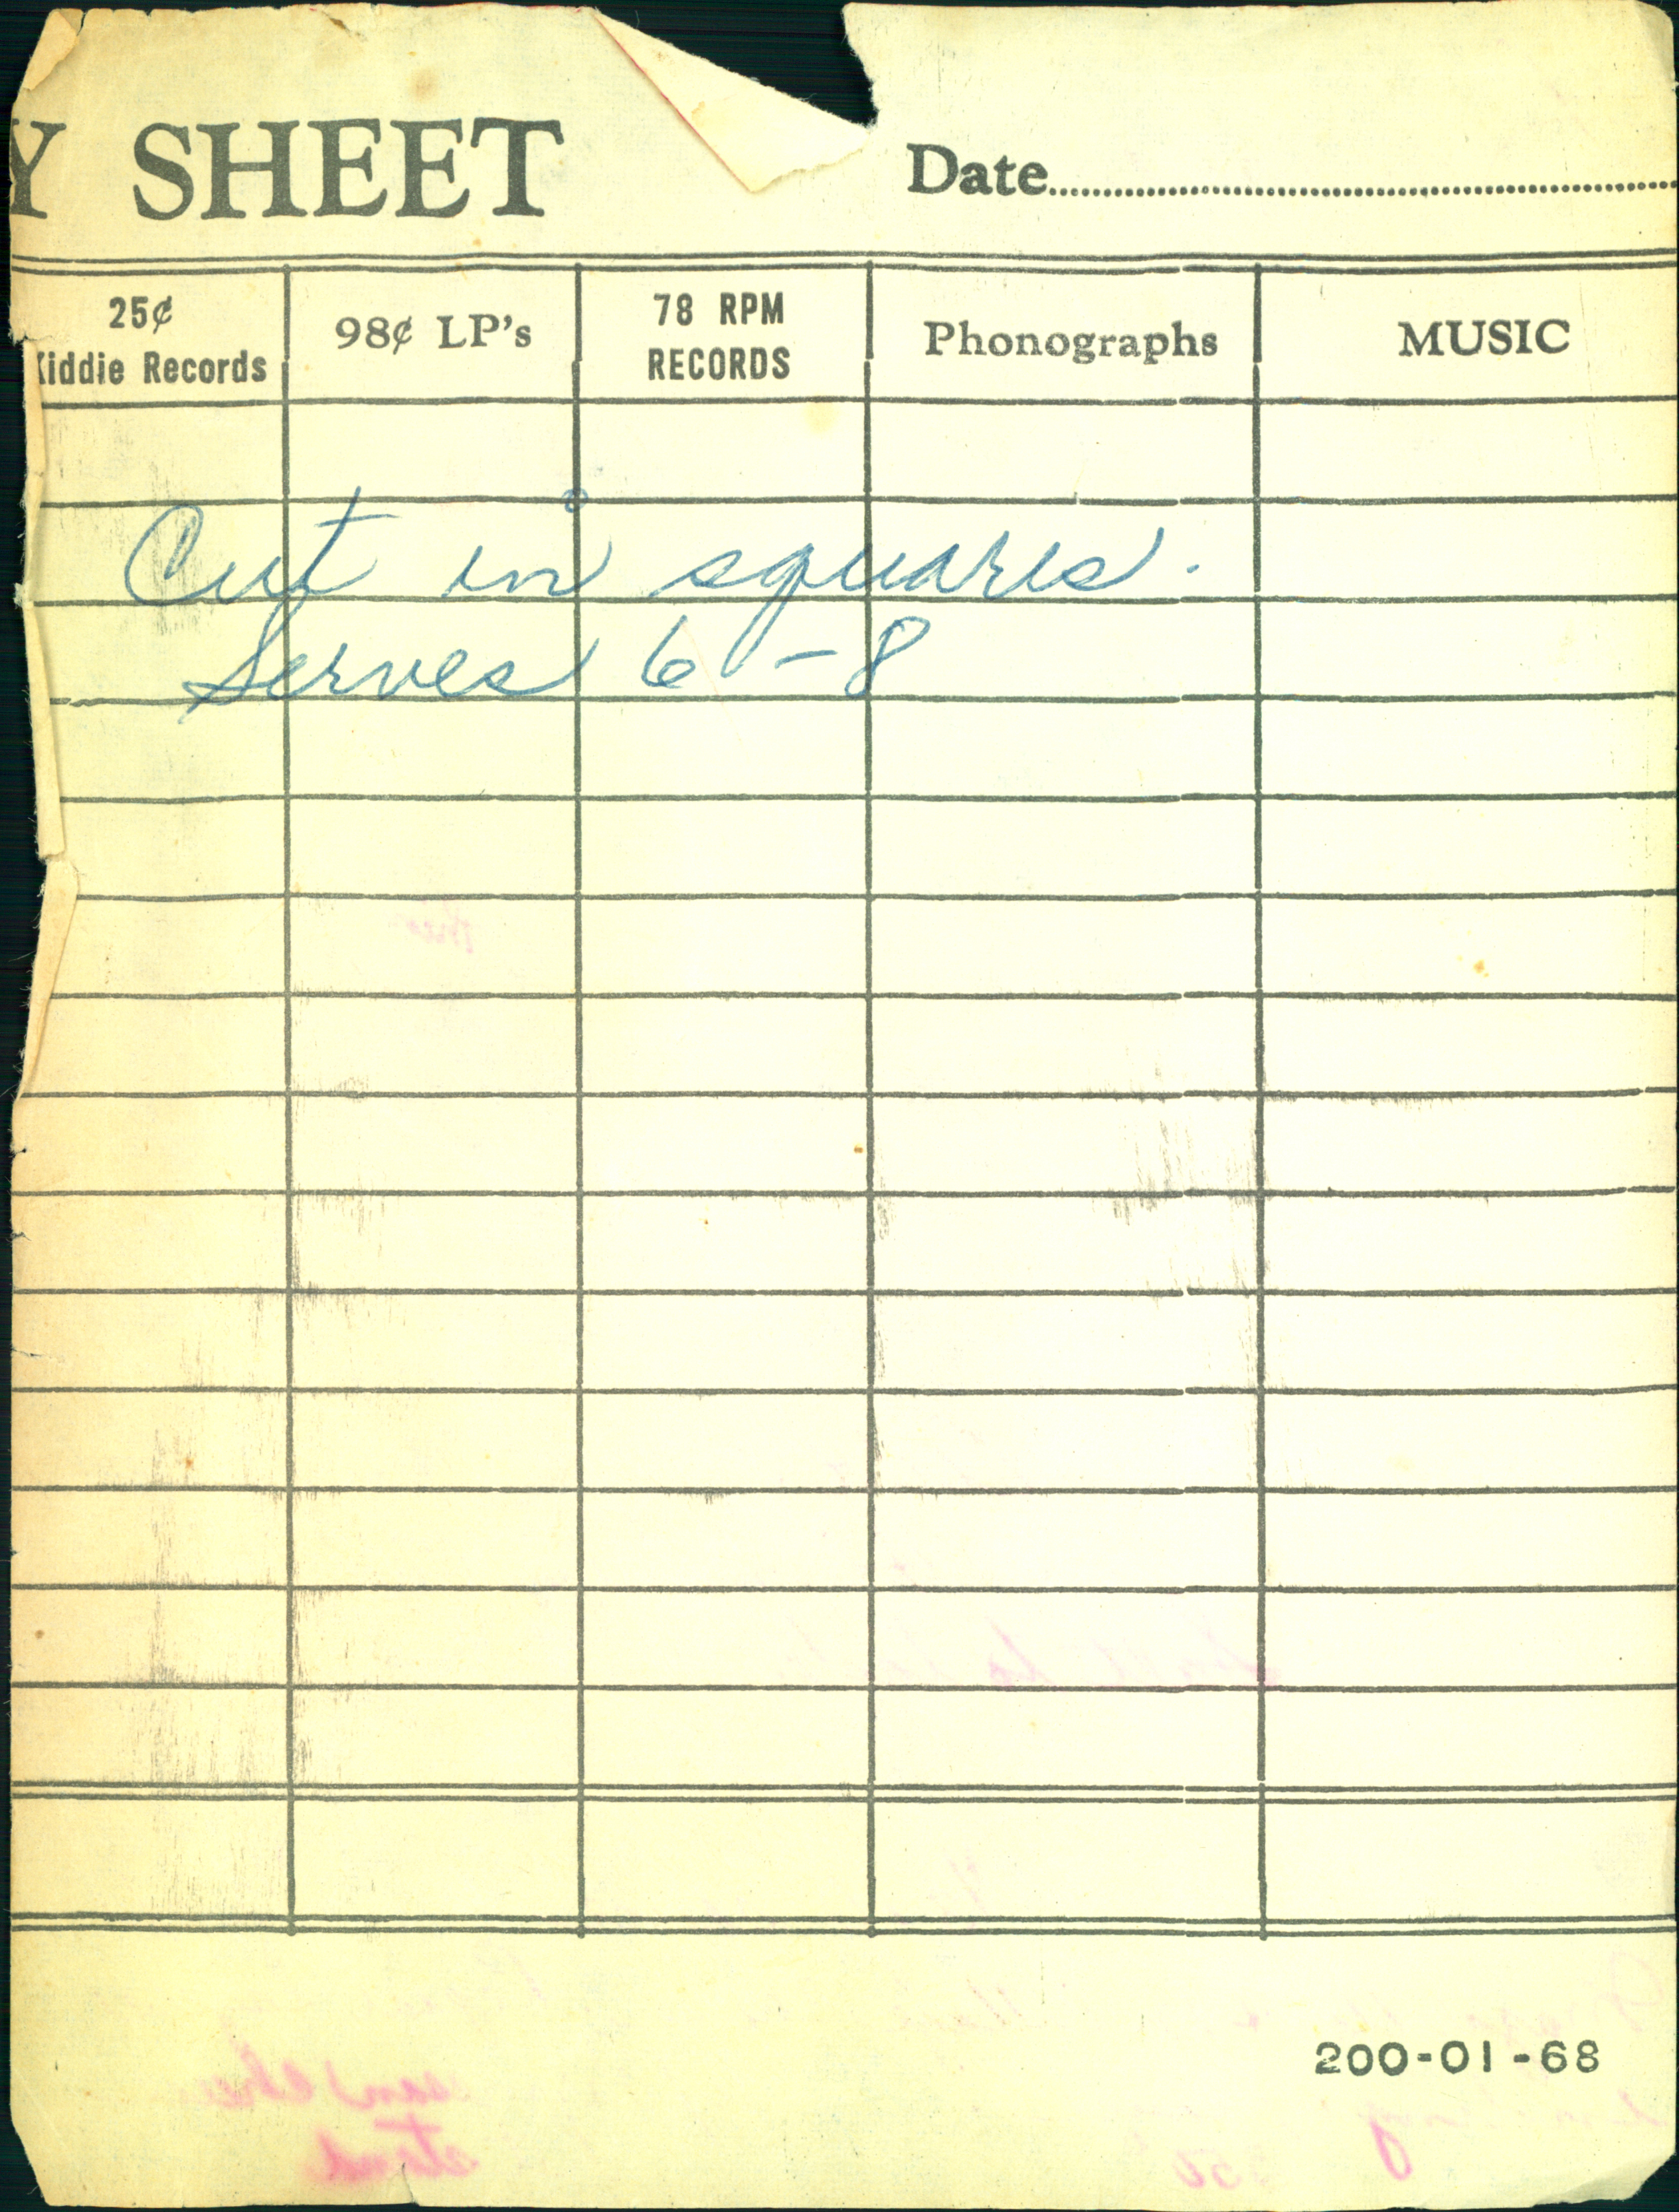 Y SHEET
Date
25¢
Kiddie Records
98¢ LP's
78 RPM
RECORDS
Phonographs
MUSIC
Cut in squares.
Serves 6-8
200-01-68